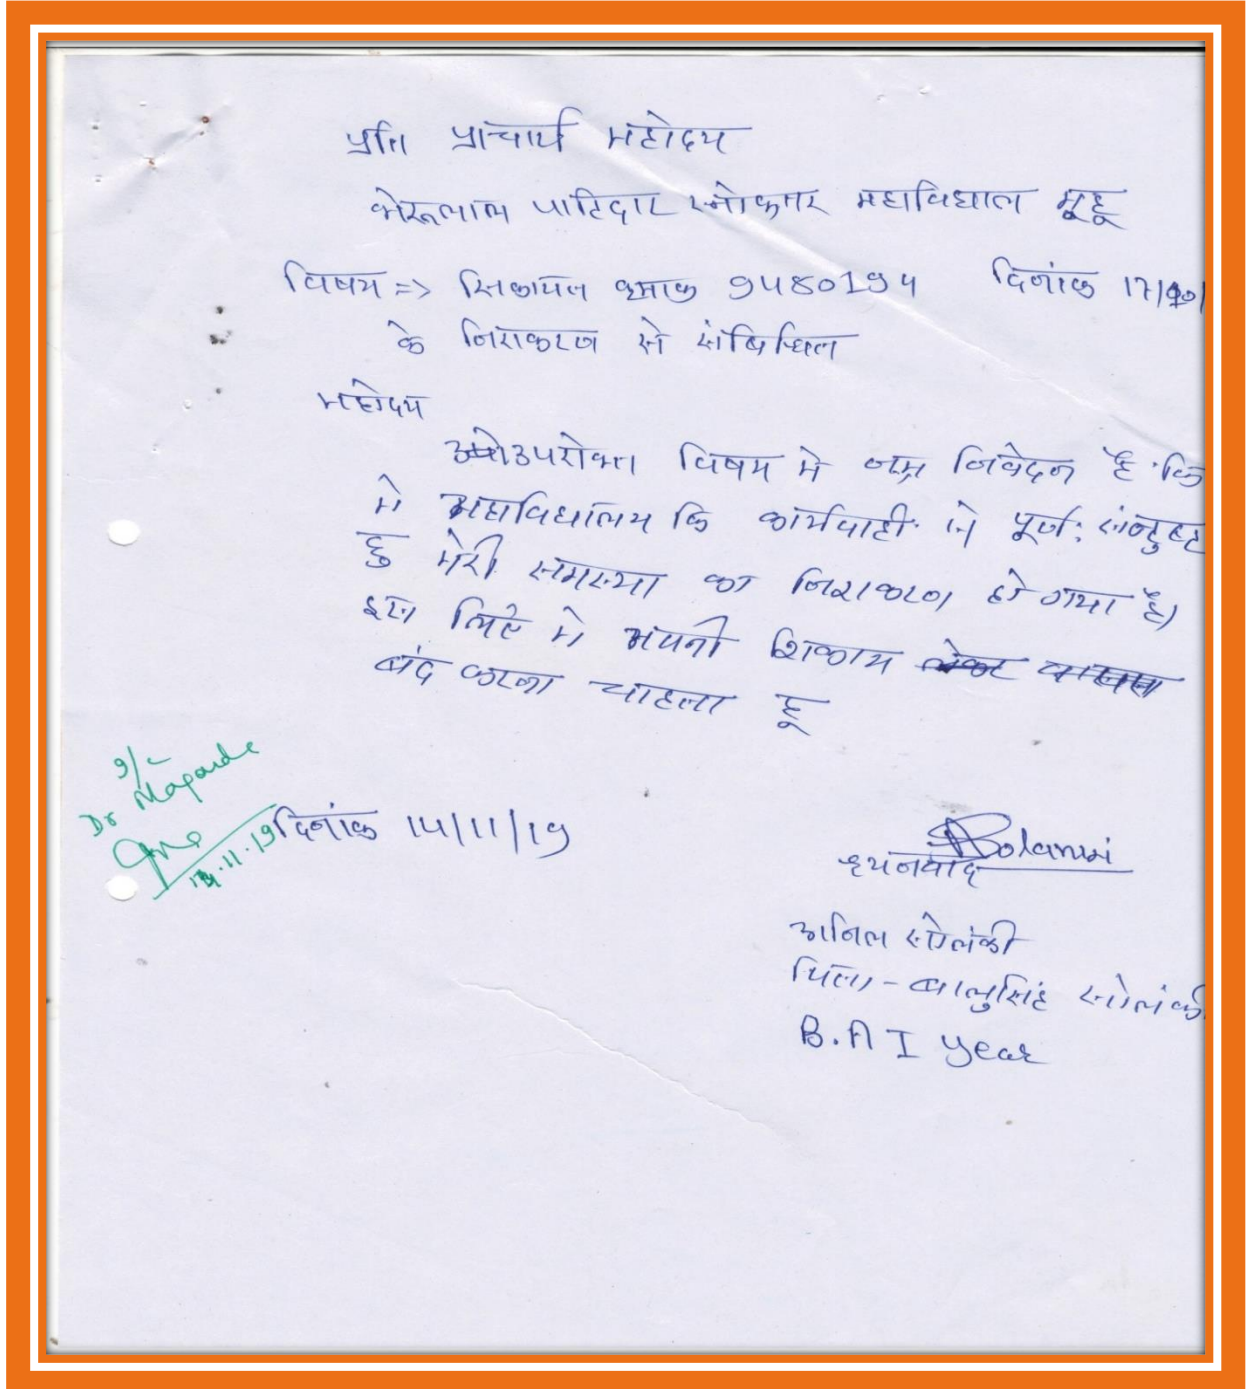 प्रति प्राचार्य महोदय
भेरूलाल पाटिदार स्नोकतार महाविधाल महू
विषय => सिकायत क्रमाक 9480194 दिनांक 17/10/
के निराकरण से संबिधित
महोदय
उपरोक्त विषय मे नम्र निवेदन है कि
मे महाविधालय कि कार्यवाही से पूर्ण: संन्तुष्ट
हु मेरी समस्या का निराकरण हो गया है।
इस लिऐ मे अपनी शिकाय
बंद करना चाहता हू
g/c
Dr Magarde
दिनांक 14/11/19
.11.19
Solanki
ध्यनवाद
अनिल सोलंकी
पिता - बालुसिंह सोलंकी
B.A I year